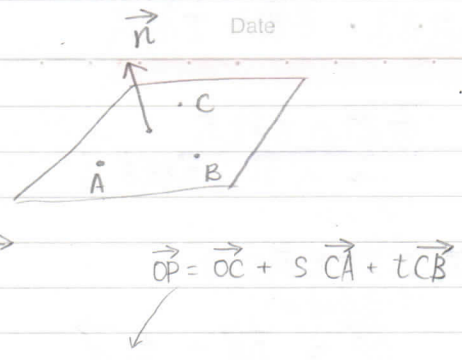 Date
n⃗
C
A
B
O͞P⃗ = O͞C⃗ + S C͞A⃗ + t C͞B⃗